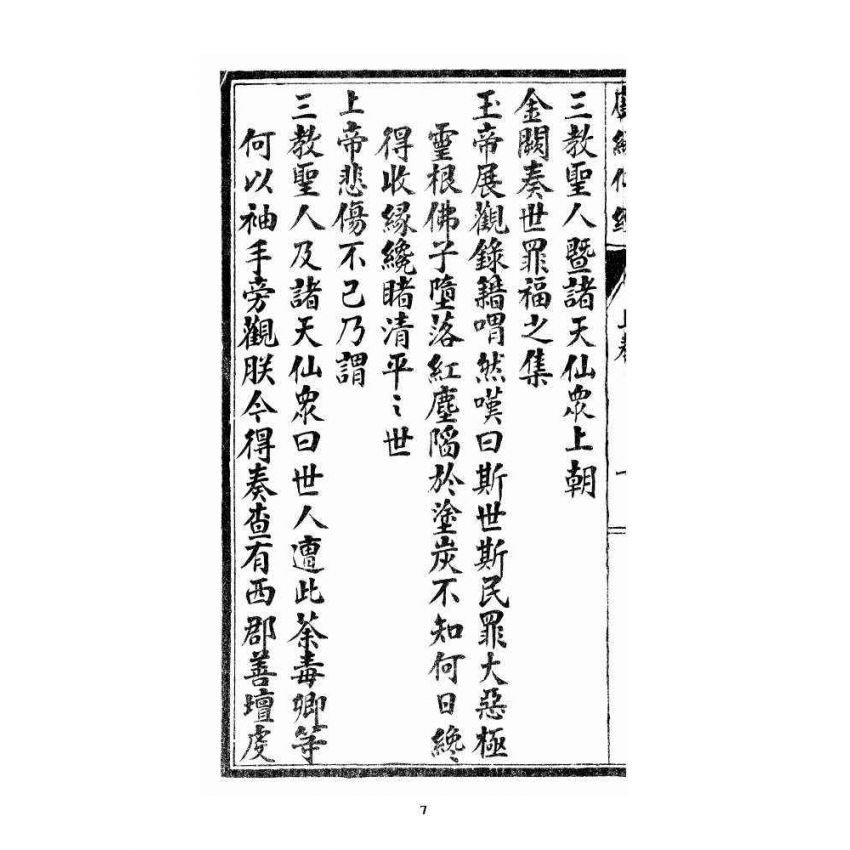 三教聖人暨諸天仙衆上朝
金闕奏世罪福之集
玉帝展觀錄籍喟然嘆曰斯世斯民罪大惡極
靈根佛子墮落紅塵陷於塗炭不知何日纔
得收緣纔睹清平〻世
上帝悲傷不已乃謂
三教聖人及諸天仙衆曰世人遭此荼毒卿等
何以袖手旁觀朕今得奏查有西郡善壇虔
7